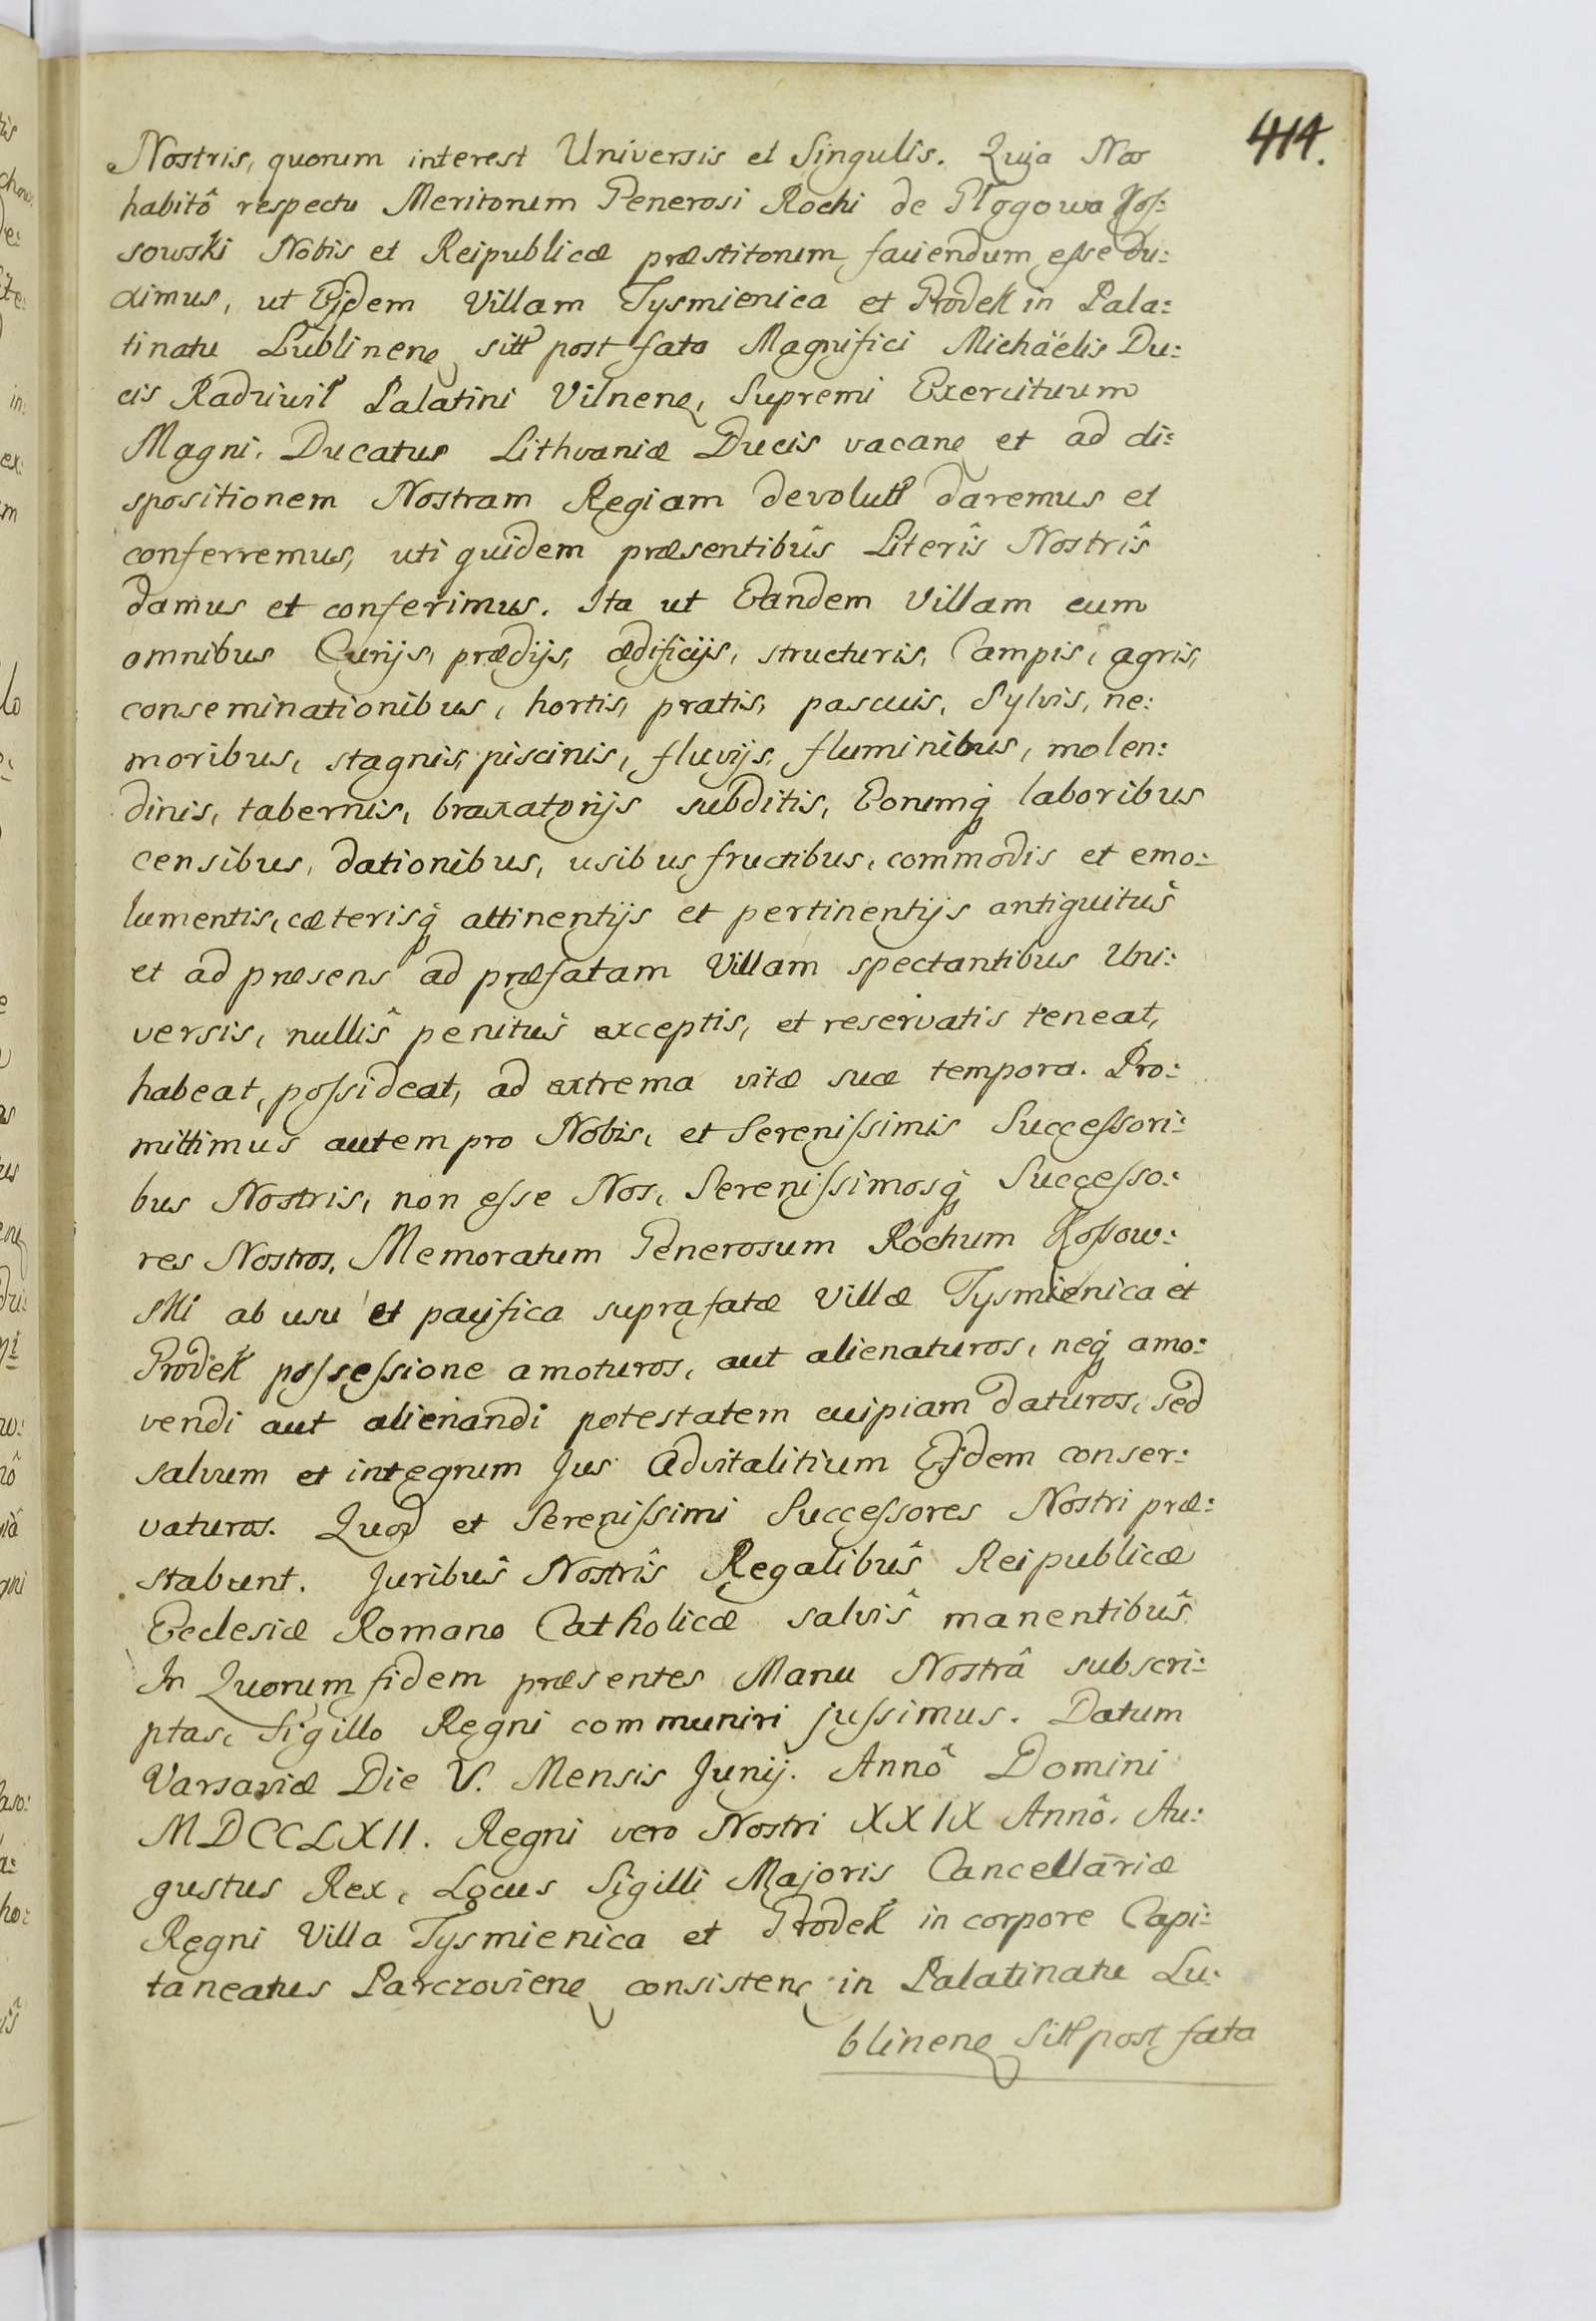 414.
Nostris, quorum interest Universis et Singulis. Quia Nos
habitô respectu Meritorum Generosi Rochi de Głogowa Kos:
sowski Nobis et Reipublicæ præstitorum faciendum esse du:
ximus, ut Ejdem Villam Tysmienica et Grodek in Pala:
tinatu Lublinen sitt post fata Magnifici Michäelis Du:
cis Radziwił Palatini Vilnen, Supremi Exercituum
Magni. Ducatus Lithvaniæ Ducis vacan et ad di:
spositionem Nostram Regiam devolutt daremus et
conferremus, uti quidem præsentibûs Literîs Nostrîs
damus et conferimus. Ita ut Eandem Villam cum
omnibus Curijs, prædijs, ædificijs, structuris, Campis, agris,
conseminationibus, hortis, pratis, pascuis, Sylvis, ne:
moribus, stagnis, piscinis, fluvijs, fluminibus, molen:
dinis, tabernis, braxatorijs subditis, Eorumq laboribus
censibus, dationibus, usibus fructibus, commodis et emo:
lumentis, cæterisq attinentijs et pertinentijs antiquitûs
et ad præsens ad præfatam Villam spectantibus Uni:
versis, nullîs penitûs exceptis, et reservatis teneat,
habeat, possideat, ad extrema vitæ suæ tempora. Pro:
mittimus autem pro Nobis, et Serenissimis Successori:
bus Nostris, non esse Nos, Serenissimosq Successo:
res Nostros, Memoratum Generosum Rochum Kossow:
ski ab usu et pacifica suprafatæ Villæ Tysmienica et
Grodek possessione amoturos, aut alienaturos, neq amo:
vendi aut alienandi potestatem cuipiam daturos, sed
salvum et integrum Jus Advitalitium Ejdem conser:
vaturos. Quod et Serenissimi Successores Nostri præ:
stabunt. Juribûs Nostrîs Regalibûs Reipublicæ
Ecclesiæ Romano Catholicæ salvîs manentibûs
In Quorum fidem præsentes Manu Nostrâ subscri:
ptas, Sigillo Regni communiri jussimus. Datum
Varsaviæ Die V. Mensis Junij. Annô Domini
MDCCLXII. Regni vero Nostri XXIX Annô. Au:
gustus Rex, Locus Sigilli Majoris Cancellariæ
Regni Villa Tysmienica et Grodek in corpore Capi:
taneatus Parczovien consisten in Palatinatu Lu:
blinen Sitt post fata